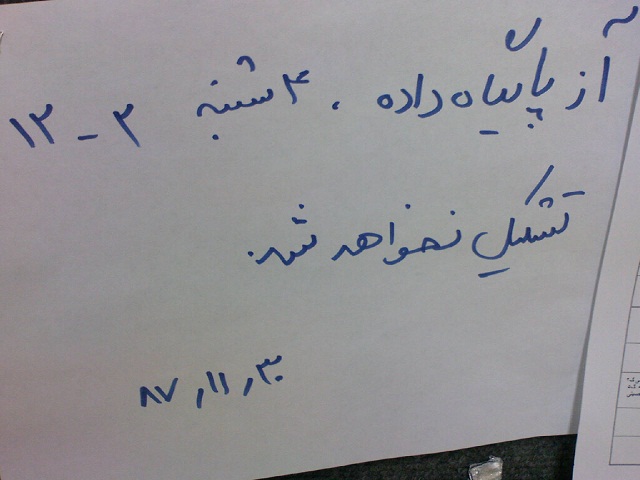 آز پایگاه داده ، ۴شنبه ۳ - ۱۲
تشکیل نخواهد شد.
۸۷/۱۱/۳۰